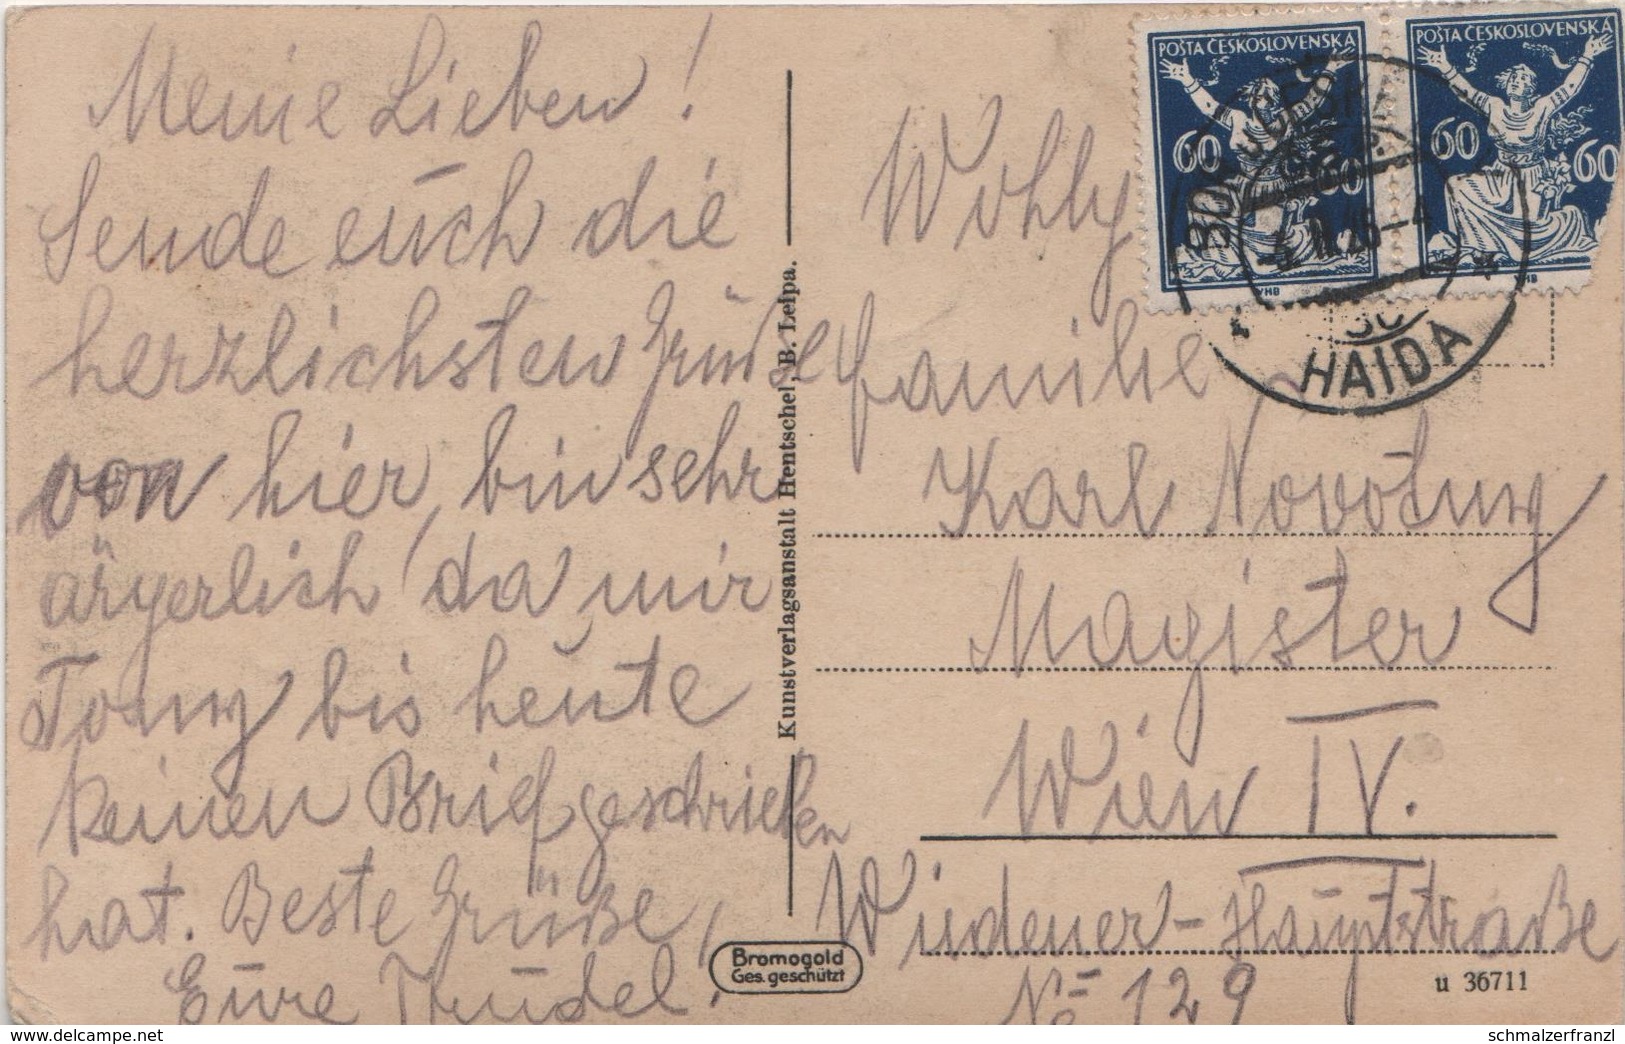 Meine Lieben!
Sende euch die
herzlichsten Grüße
von hier, bin sehr
ärgerlich, da mir
Tony bis heute
keinen Brief geschrieben
hat. Beste Grüße,
Eure Trudel.
Kunstverlagsanstalt Hentschel, B. Leipa.
Bromogold
Ges. geschützt
POŠTA ČESKOSLOVENSKÁ
60 60
POŠTA ČESKOSLOVENSKÁ
60 60
HAIDA
Wohlg
Familie
Karl Novotny
Magister
Wien IV.
Wiedener-Hauptstraße
No 129
u 36711
www.delcampe.net
schmalzerfranzl